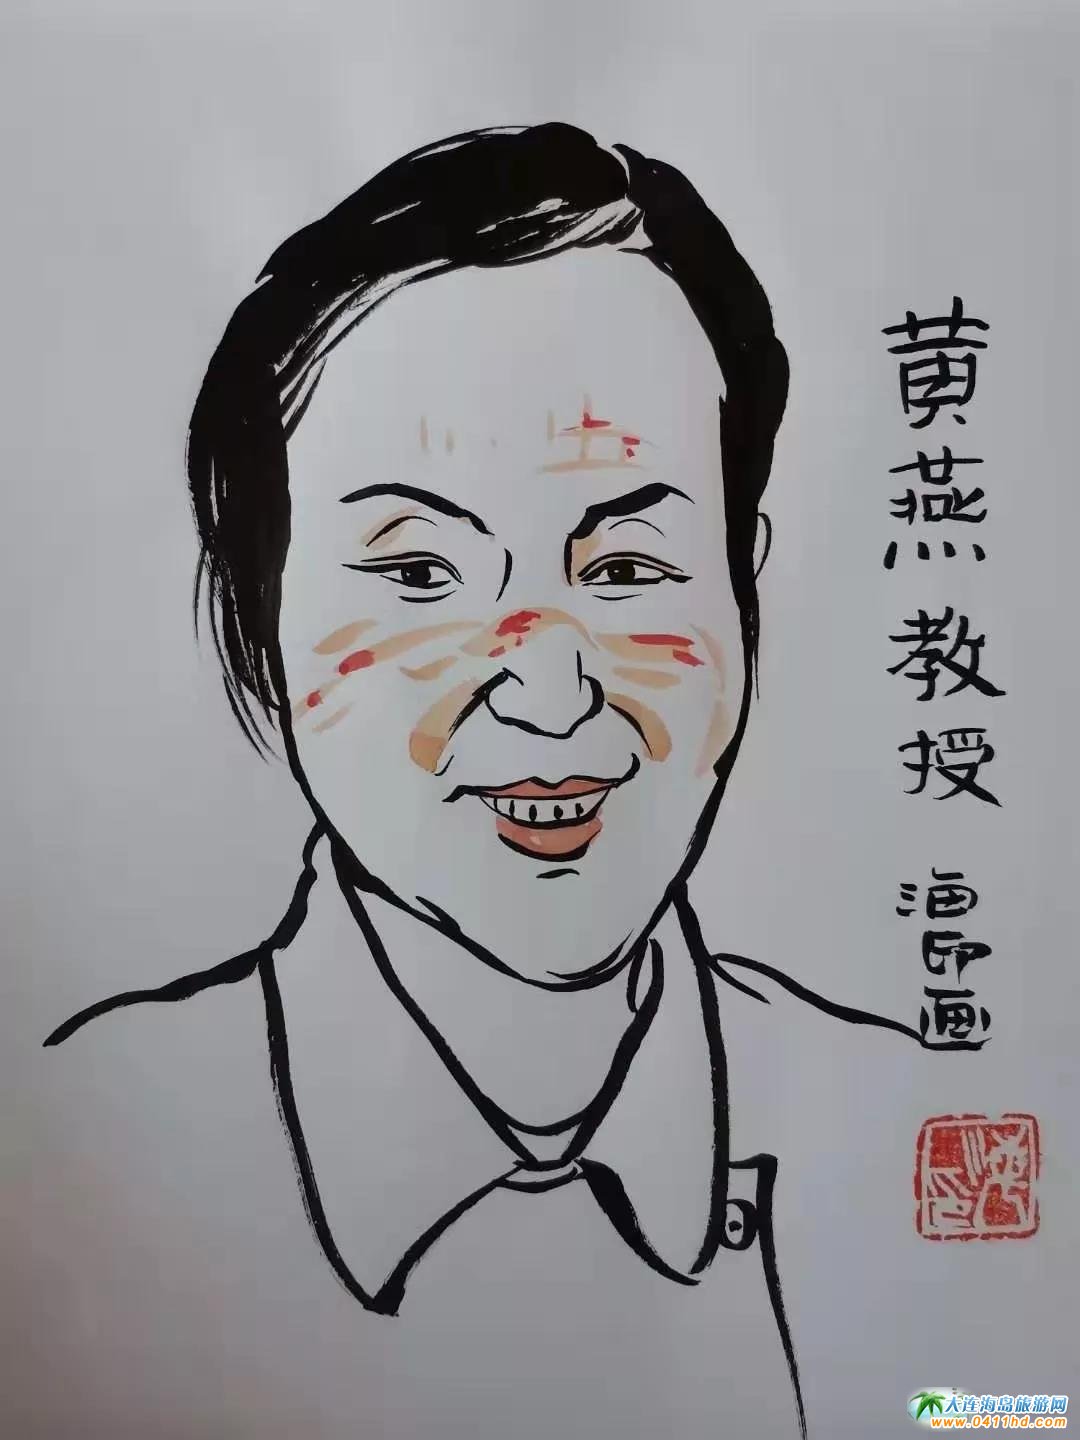 黄燕教授
海印画
大连海岛旅游网
www.0411hd.com